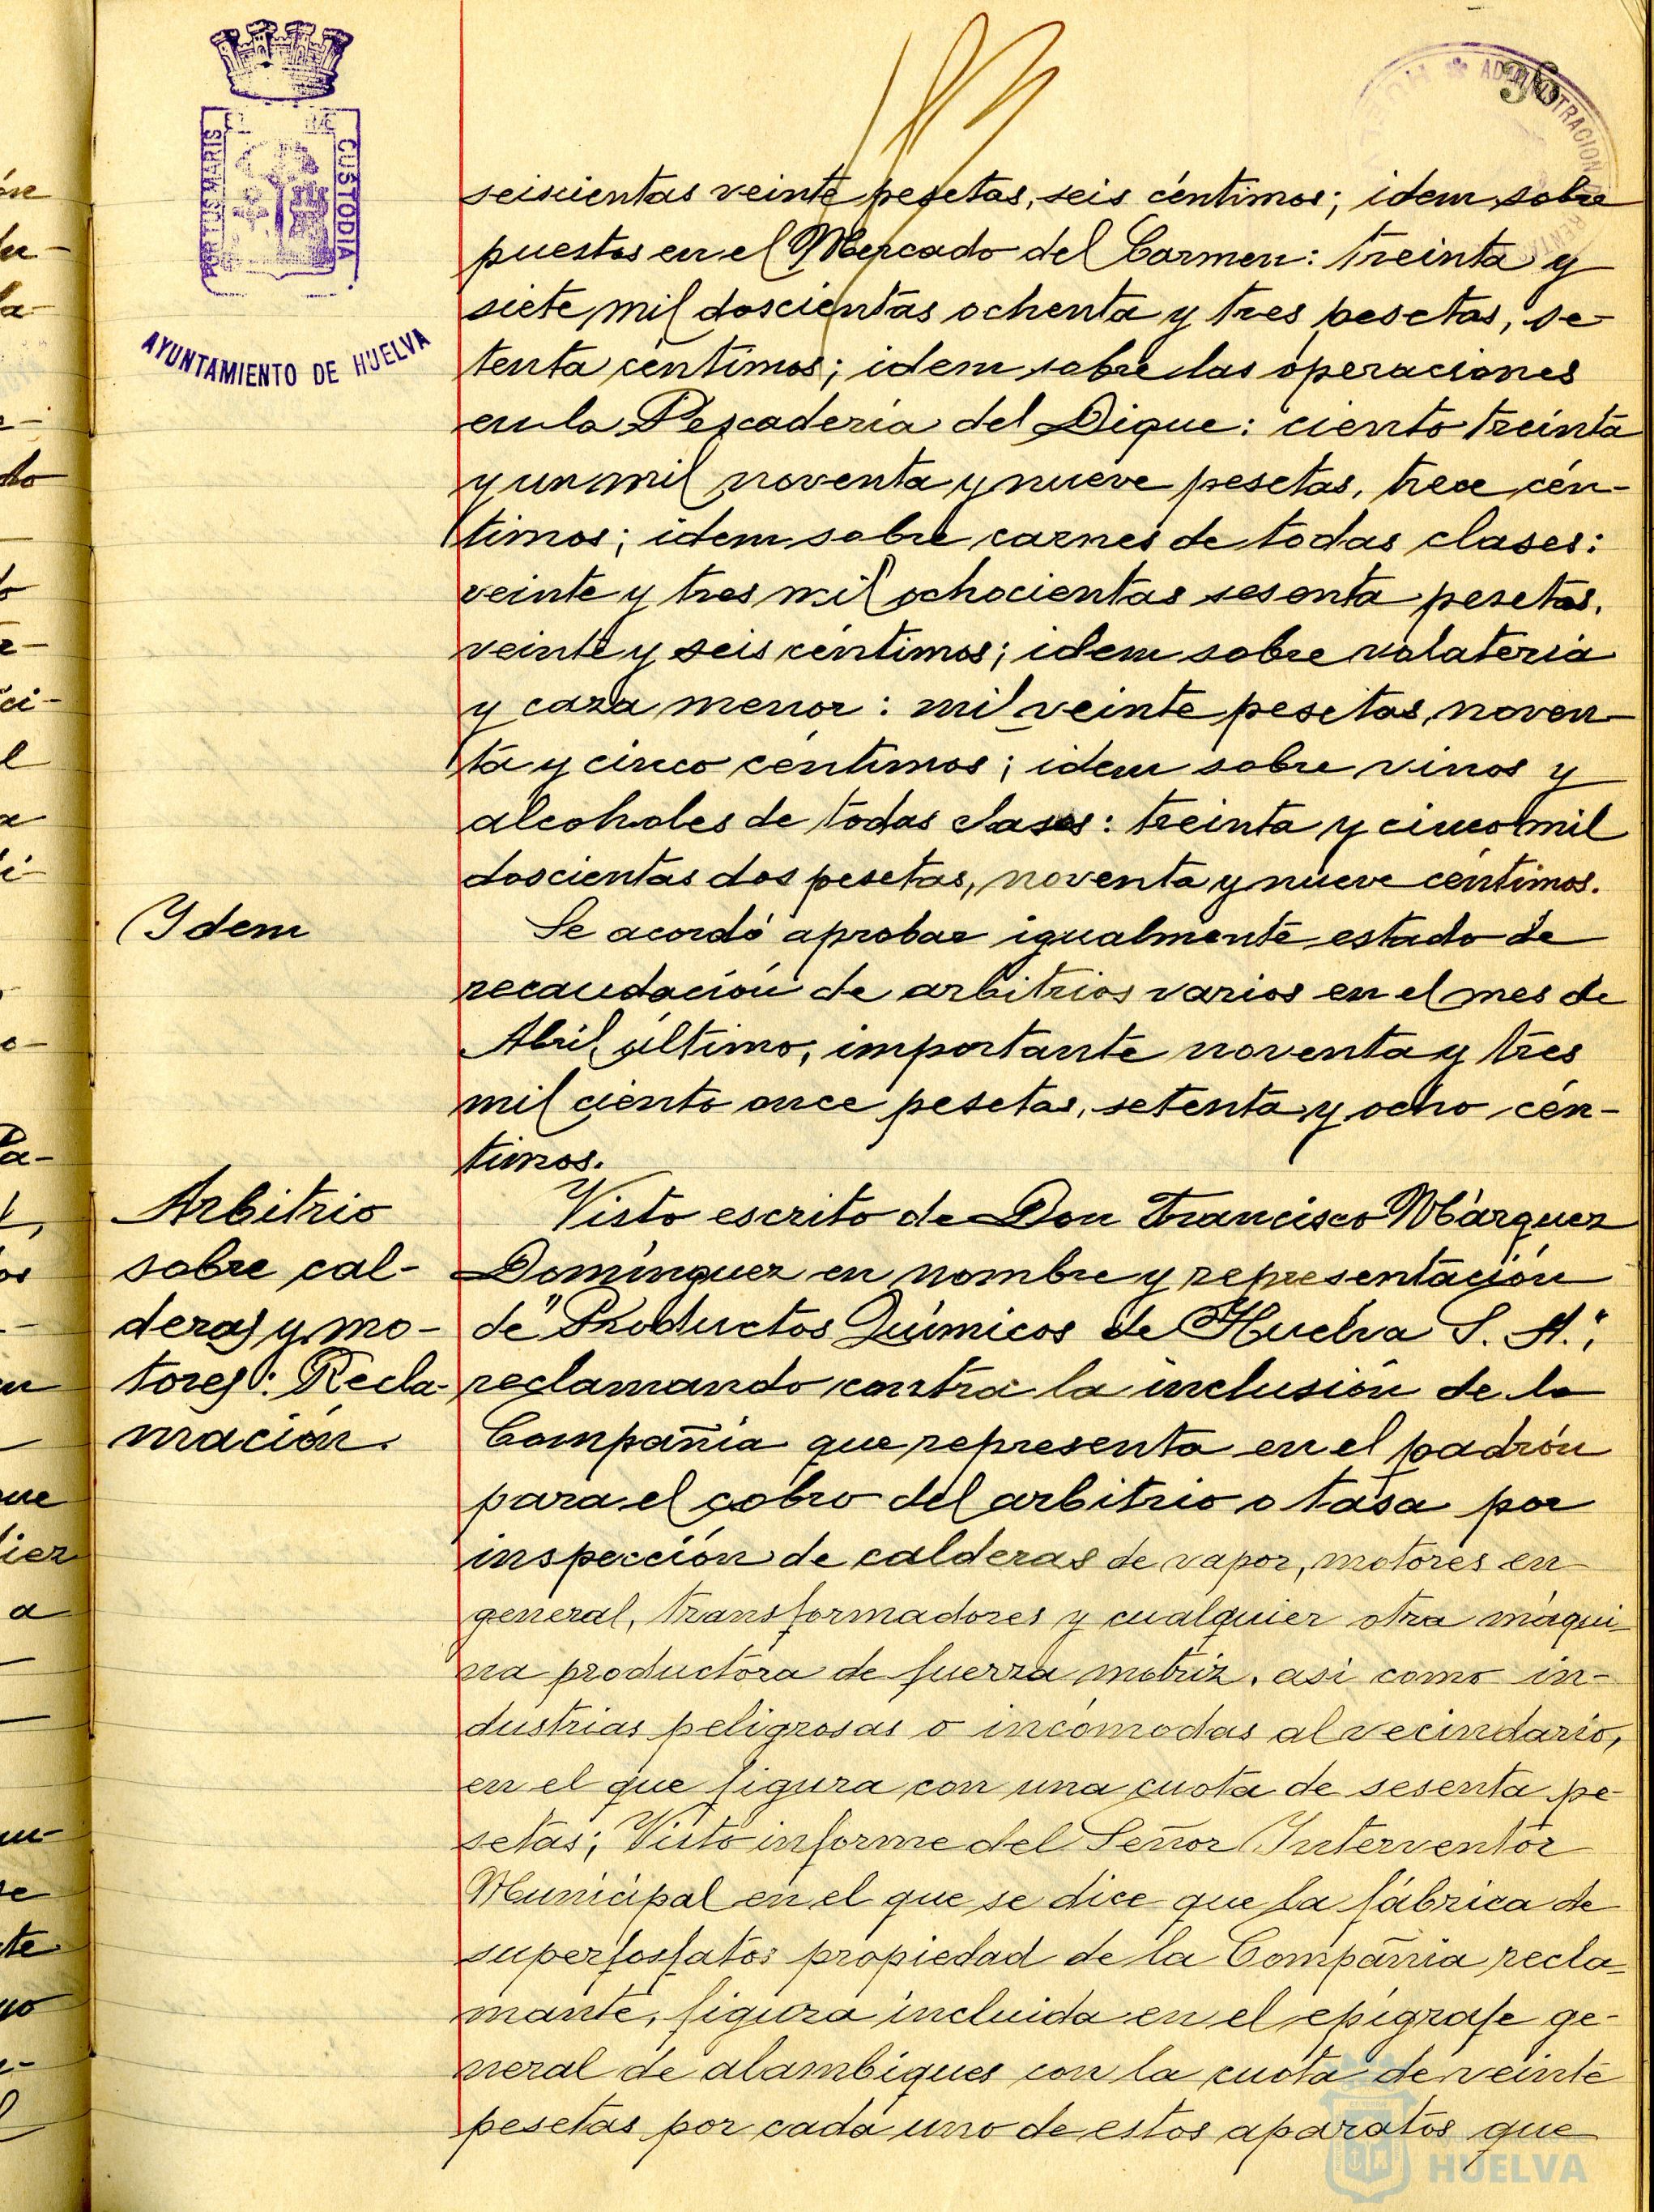 36
ADMINISTRACION
PORTUS MARIS
CUSTODIA
AYUNTAMIENTO DE HUELVA
seiscientas veinte pesetas, seis céntimos; idem sobre
puestos en el Mercado del Carmen: treinta y
siete mil doscientas ochenta y tres pesetas, se-
tenta céntimos; idem sobre las operaciones
en la Pescadería del Dique: ciento treinta
y un mil noventa y nueve pesetas, trece cén-
timos; idem sobre carnes de todas clases:
veinte y tres mil ochocientas sesenta pesetas,
veinte y seis céntimos; idem sobre volatería
y caza menor: mil veinte pesetas, noven-
ta y cinco céntimos; idem sobre vinos y
alcoholes de todas clases: treinta y cinco mil
doscientas dos pesetas, noventa y nueve céntimos.
Ydem
Se acordó aprobar igualmente estado de
recaudación de arbitrios varios en el mes de
Abril último, importante noventa y tres
mil ciento once pesetas, setenta y ocho cén-
timos.
Arbitrio
sobre cal-
deras y mo-
tores: Recla-
mación.
Visto escrito de Don Francisco Márquez
Domínguez en nombre y representación
de "Productos Químicos de Huelva S. A.",
reclamando contra la inclusión de la
Compañía que representa en el padrón
para el cobro del arbitrio o tasa por
inspección de calderas de vapor, motores en
general, transformadores y cualquier otra máqui-
na productora de fuerza motriz, asi como in-
dustrias peligrosas o incómodas al vecindario,
en el que figura con una cuota de sesenta pe-
setas; Visto informe del Señor Interventor
Municipal en el que se dice que la fábrica de
superfosfatos propiedad de la Compañía recla-
mante, figura incluida en el epígrafe ge-
neral de alambiques con la cuota de veinte
pesetas por cada uno de estos aparatos que
HUELVA